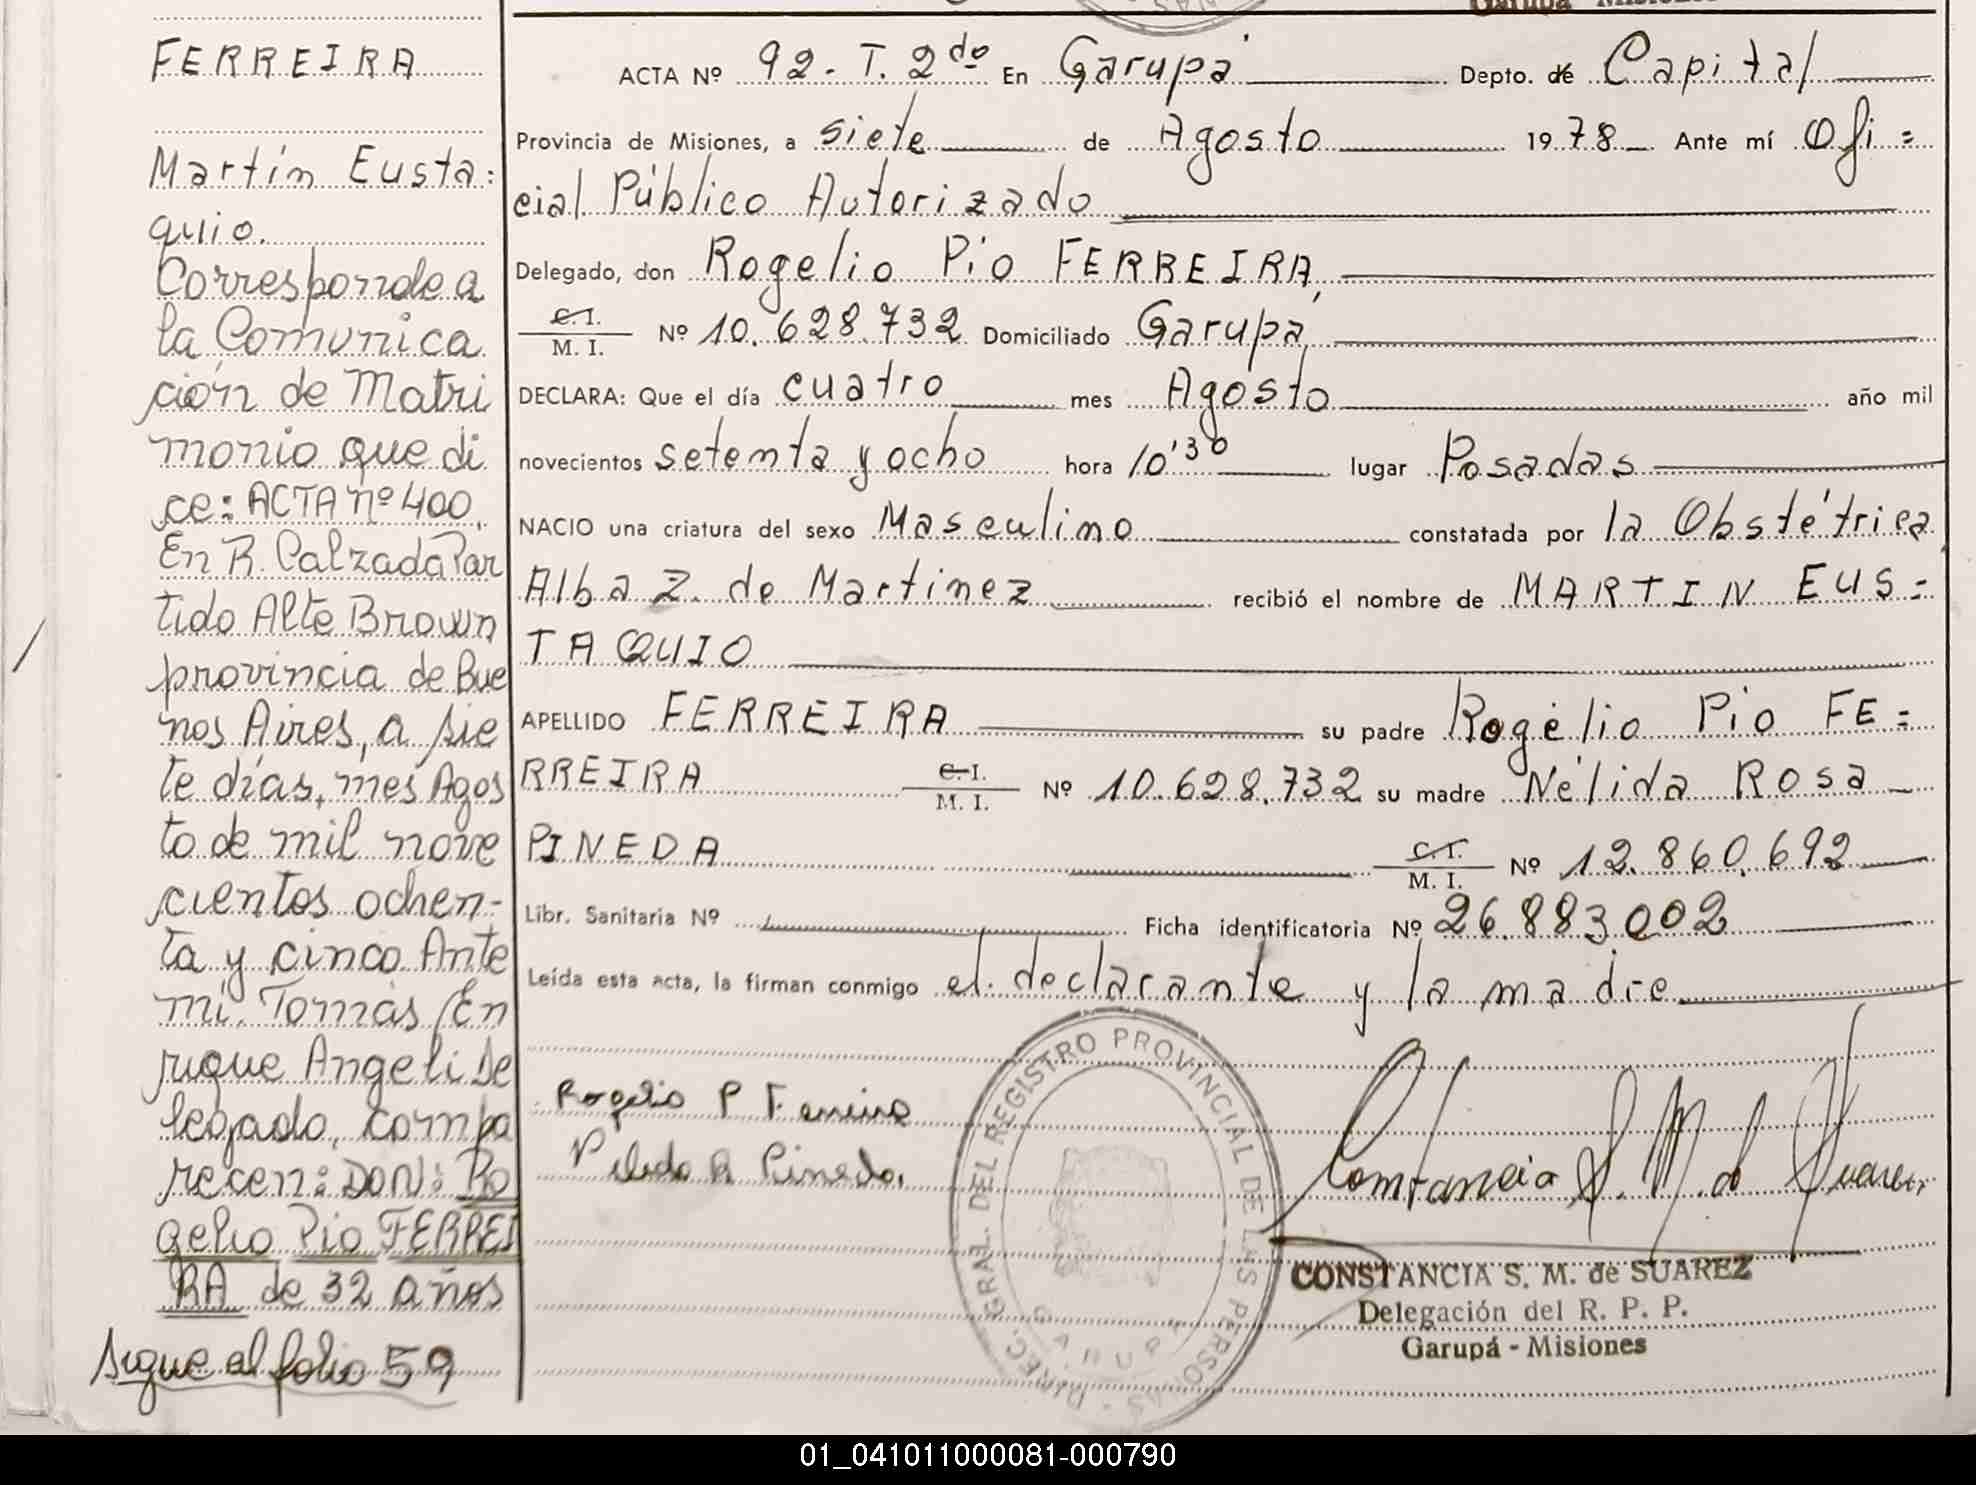 Garupá Misiones
FERREIRA
Martín Eusta=
quio.
Corresponde a
la Comunica
ción de Matri
monio que di
ce: ACTA nº 400.
En R. Calzada Par
tido Alte Brown
provincia de Bue
nos Aires, a sie
te días, mes Agos
to de mil nove
cientos ochen-
ta y cinco Ante
mí. Tomás En
rique Angeli De
legado, compa
recen: DON: Ro
gelio Pío FERREI
RA de 32 años
Sigue al folio 59
ACTA Nº 92 - T. 2do En Garupá Depto. de Capital
Provincia de Misiones, a siete de Agosto 1978 Ante mí Ofi=
cial Público Autorizado
Delegado, don Rogelio Pío FERREIRA,
C.I.
M. I. Nº 10.628.732 Domiciliado Garupá,
DECLARA: Que el día cuatro mes Agosto año mil
novecientos setenta y ocho hora 10'30 lugar Posadas
NACIO una criatura del sexo Masculino constatada por la Obstétrica
Alba Z. de Martinez recibió el nombre de MARTIN EUS=
TAQUIO
APELLIDO FERREIRA su padre Rogelio Pío FE=
RREIRA C.I. M. I. Nº 10.628.732 su madre Nélida Rosa
PINEDA C.I. M. I. Nº 12.860.692
Libr. Sanitaria Nº Ficha identificatoria Nº 26.883.002
Leída esta acta, la firman conmigo el declarante y la madre
Rogelio P Ferreira
Nelida R Pineda.
DIREC. GRAL. DEL REGISTRO PROVINCIAL DE LAS PERSONAS
GARUPÁ
Constancia S. M. de Suarez
CONSTANCIA S. M. de SUAREZ
Delegación del R. P. P.
Garupá - Misiones
01_041011000081-000790